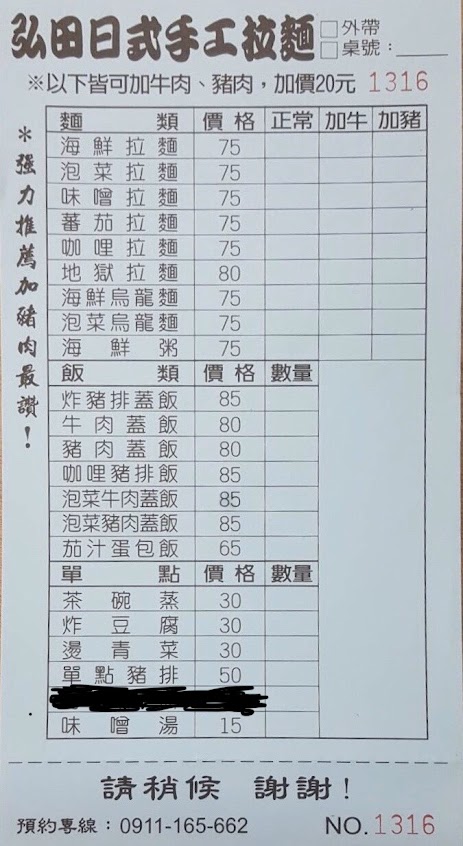 弘田日式手工拉麵 □外帶
□桌號：
※以下皆可加牛肉、豬肉，加價20元 1316
＊強力推薦加豬肉最讚！
麵類 價格 正常 加牛 加豬
海鮮拉麵 75
泡菜拉麵 75
味噌拉麵 75
蕃茄拉麵 75
咖哩拉麵 75
地獄拉麵 80
海鮮烏龍麵 75
泡菜烏龍麵 75
海鮮粥 75
飯類 價格 數量
炸豬排蓋飯 85
牛肉蓋飯 80
豬肉蓋飯 80
咖哩豬排飯 85
泡菜牛肉蓋飯 85
泡菜豬肉蓋飯 85
茄汁蛋包飯 65
單點 價格 數量
茶碗蒸 30
炸豆腐 30
燙青菜 30
單點豬排 50
味噌湯 15
請稍候 謝謝！
預約專線：0911-165-662 NO.1316